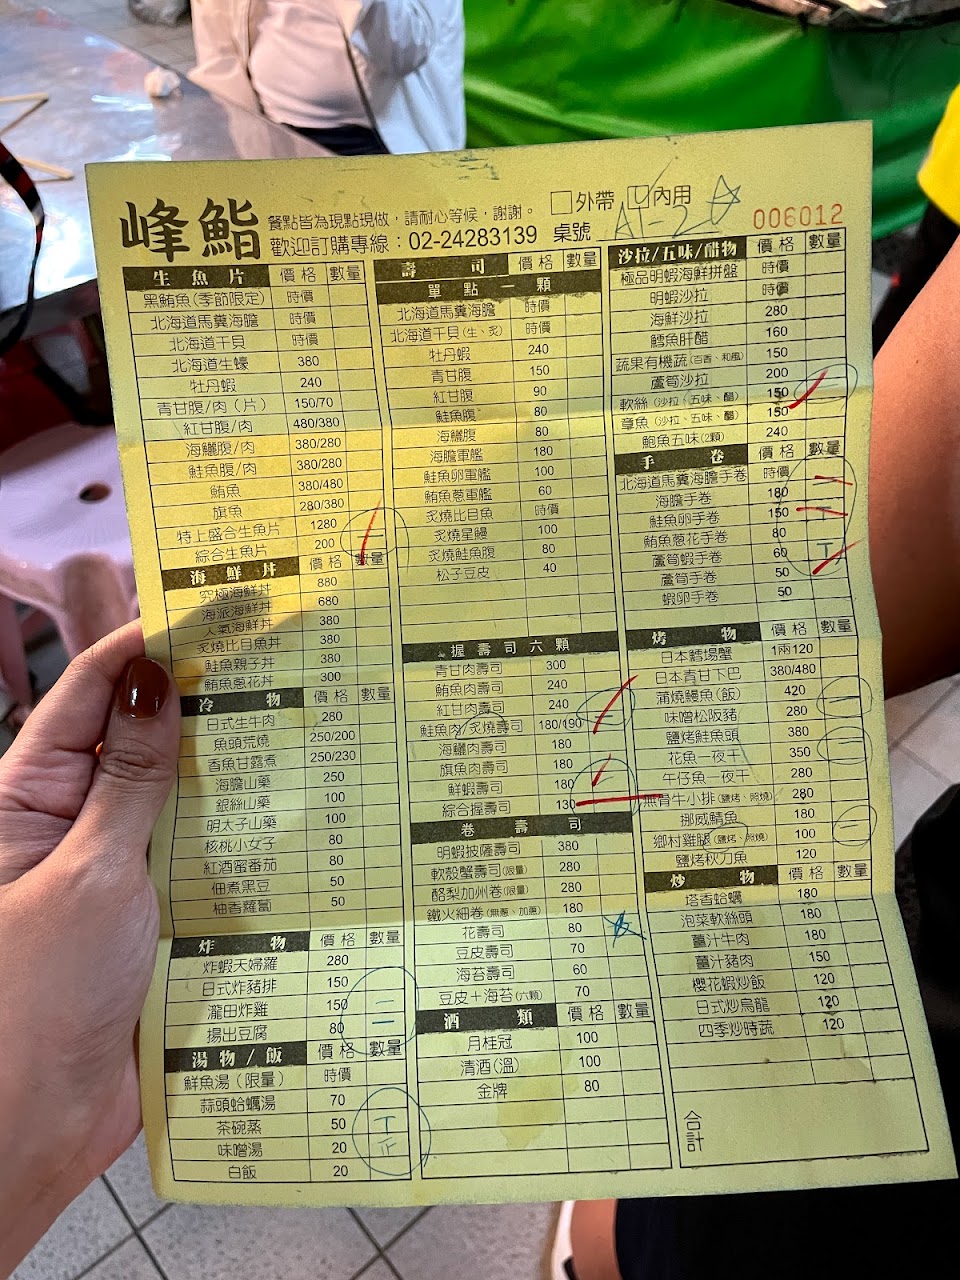 峰鮨
餐點皆為現點現做，請耐心等候，謝謝。
歡迎訂購專線：02-24283139
□外帶 □內用
桌號 A1-2
006012
生魚片 價格 數量
黑鮪魚(季節限定) 時價
北海道馬糞海膽 時價
北海道干貝 時價
北海道生蠔 380
牡丹蝦 240
青甘腹/肉(片) 150/70
紅甘腹/肉 480/380
海鱺腹/肉 380/280
鮭魚腹/肉 380/280
鮪魚 380/480
旗魚 280/380
特上盛合生魚片 1280
綜合生魚片 200 一
海鮮丼 價格 數量
究極海鮮丼 880
海派海鮮丼 680
人氣海鮮丼 380
炙燒比目魚丼 380
鮭魚親子丼 380
鮪魚蔥花丼 300
冷物 價格 數量
日式生牛肉 280
魚頭荒燒 250/200
香魚甘露煮 250/230
海膽山藥 250
銀絲山藥 100
明太子山藥 100
核桃小女子 80
紅酒蜜番茄 80
佃煮黑豆 50
柚香蘿蔔 50
炸物 價格 數量
炸蝦天婦羅 280
日式炸豬排 150
瀧田炸雞 150 二
揚出豆腐 80 二
湯物/飯 價格 數量
鮮魚湯(限量) 時價
蒜頭蛤蠣湯 70
茶碗蒸 50 丅
味噌湯 20 正
白飯 20
壽司 價格 數量
單點一顆
北海道馬糞海膽 時價
北海道干貝(生、炙) 時價
牡丹蝦 240
青甘腹 150
紅甘腹 90
鮭魚腹 80
海鱺腹 80
海膽軍艦 180
鮭魚卵軍艦 100
鮪魚蔥軍艦 60
炙燒比目魚 時價
炙燒星鰻 100
炙燒鮭魚腹 80
松子豆皮 40
握壽司六顆
青甘肉壽司 300
鮪魚肉壽司 240
紅甘肉壽司 240
鮭魚肉/炙燒壽司 180/190 一
海鱺肉壽司 180
旗魚肉壽司 180
鮮蝦壽司 180 一
綜合握壽司 130
卷壽司
明蝦披薩壽司 380
軟殼蟹壽司(限量) 280
酪梨加州卷(限量) 280
鐵火細卷(無蔥、加蔥) 180
花壽司 80
豆皮壽司 70
海苔壽司 60
豆皮+海苔(六顆) 70
酒類 價格 數量
月桂冠 100
清酒(溫) 100
金牌 80
沙拉/五味/醋物 價格 數量
極品明蝦海鮮拼盤 時價
明蝦沙拉 時價
海鮮沙拉 280
鱈魚肝醋 160
蔬果有機蔬(百香、和風) 150
蘆筍沙拉 200
軟絲(沙拉、五味、醋) 150 一
章魚(沙拉、五味、醋) 150
鮑魚五味(2顆) 240
手卷 價格 數量
北海道馬糞海膽手卷 時價
海膽手卷 180
鮭魚卵手卷 150 丅
鮪魚蔥花手卷 80
蘆筍蝦手卷 60 丅
蘆筍手卷 50
蝦卵手卷 50
烤物 價格 數量
日本鱈場蟹 1兩120
日本青甘下巴 380/480
蒲燒鰻魚(飯) 420
味噌松阪豬 280 一
鹽烤鮭魚頭 380
花魚一夜干 350 一
午仔魚一夜干 280
無骨牛小排(鹽烤、照燒) 280
挪威鯖魚 180
鄉村雞腿(鹽烤、照燒) 100
鹽烤秋刀魚 120
炒物 價格 數量
塔香蛤蠣 180
泡菜軟絲頭 180
薑汁牛肉 180
薑汁豬肉 150
櫻花蝦炒飯 120
日式炒烏龍 120
四季炒時蔬 120
合計